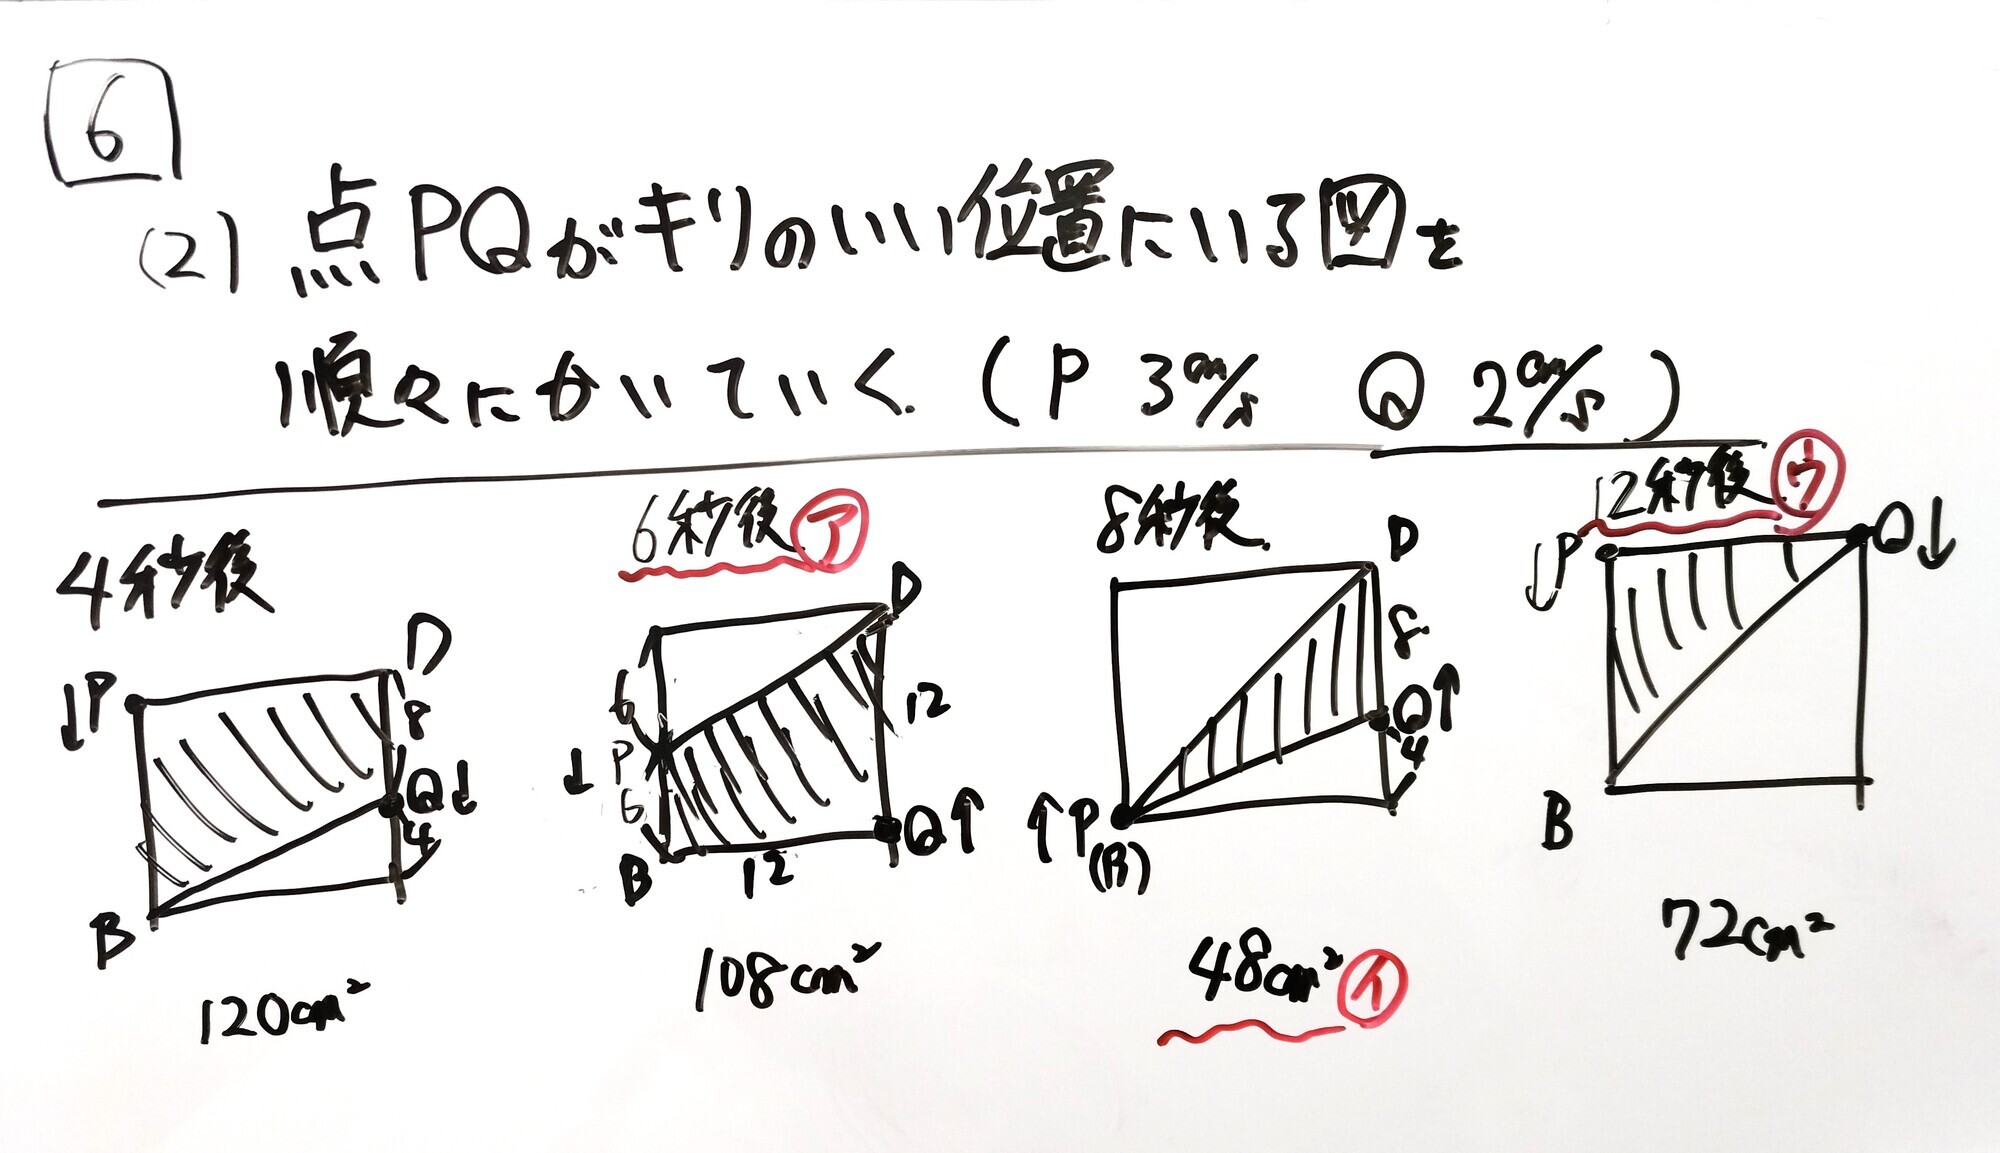 6
(2) 点PQがキリのいい位置にいる図を
順々にかいていく. (P 3cm/s Q 2cm/s)
4秒後
↓P
D
8
Q↓
4
B
120cm²
6秒後 ㋐
D
6
↓P
6
12
B
12
Q↑
108cm²
8秒後
D
8
Q↑
4
↑P
(B)
48cm² ㋑
12秒後 ㋒
↓P
Q↓
B
72cm²